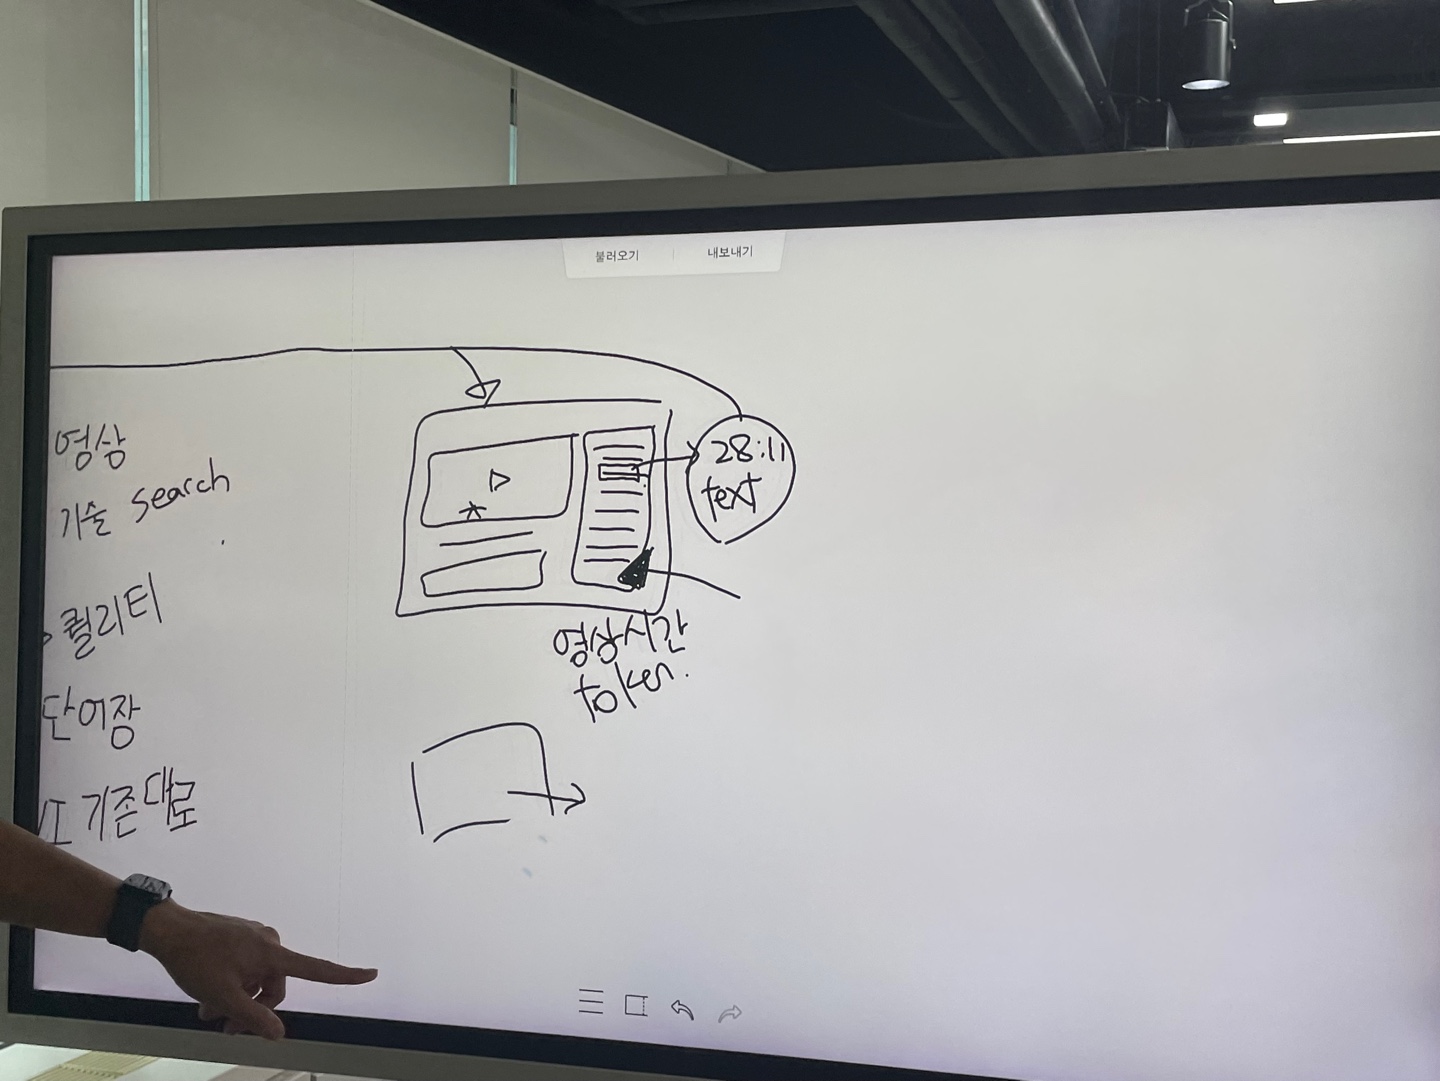 불러오기 내보내기
영상
기술 search
퀄리티
단어장
기존대로
28:11
text
영상시간
token.